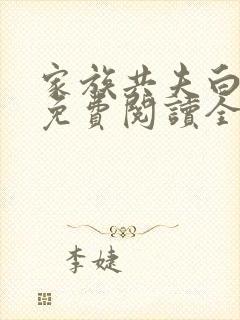 家族共夫白
免費閱讀全
李婕